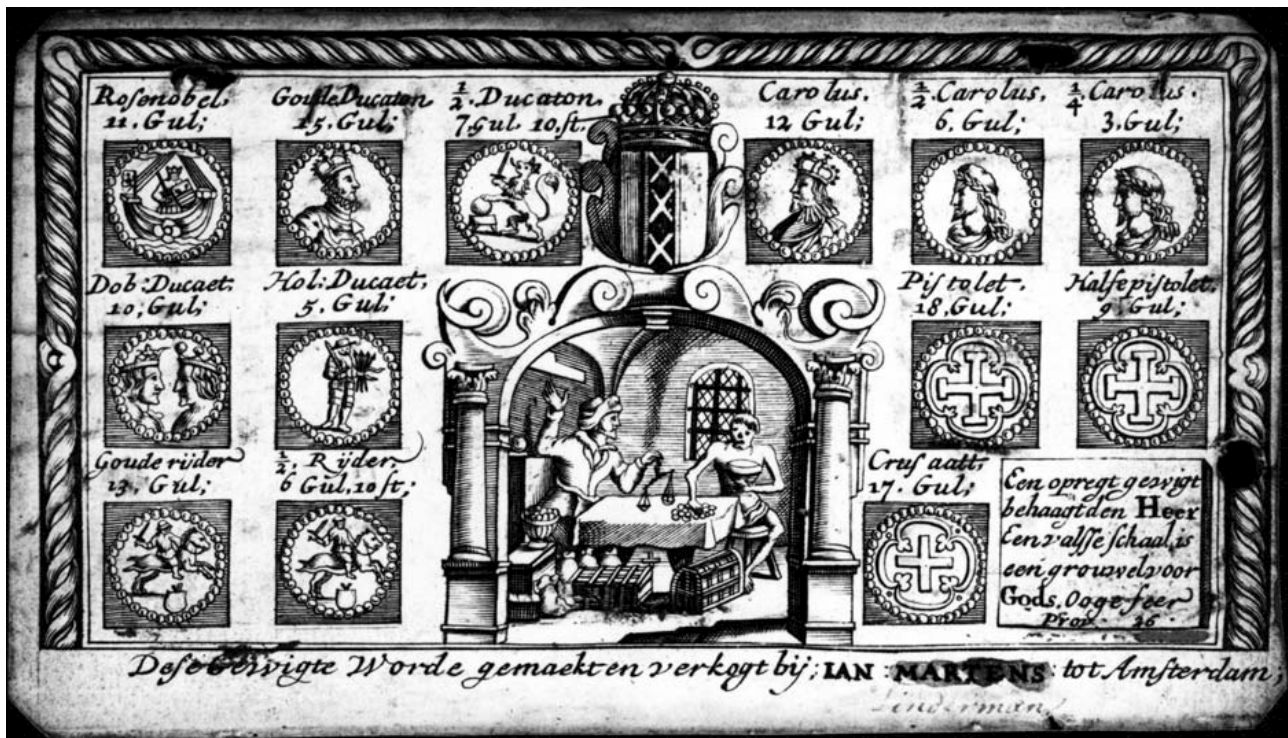 Rosenobel,
11. Gul;
Goude Ducaton
15. Gul;
1/2. Ducaton.
7. Gul. 10. st.
Carolus.
12 Gul;
1/2. Carolus.
6. Gul;
1/4. Carolus.
3. Gul;
Dob: Ducaet.
10. Gul;
Hol: Ducaet.
5. Gul;
Pistolet.
18. Gul;
Halfe pistolet.
9. Gul;
Goude rijder
13. Gul;
1/2. Rijder,
6 Gul, 10 st;
Crusaatt.
17. Gul;
Een opregt gewigt
behaagt den Heer
Een valsse schaal, is
een grouwel voor
Gods, Ooge seer
Prov 26
Dese Gewigte Worde gemaekt en verkogt bij; IAN MARTENS tot Amsterdam;